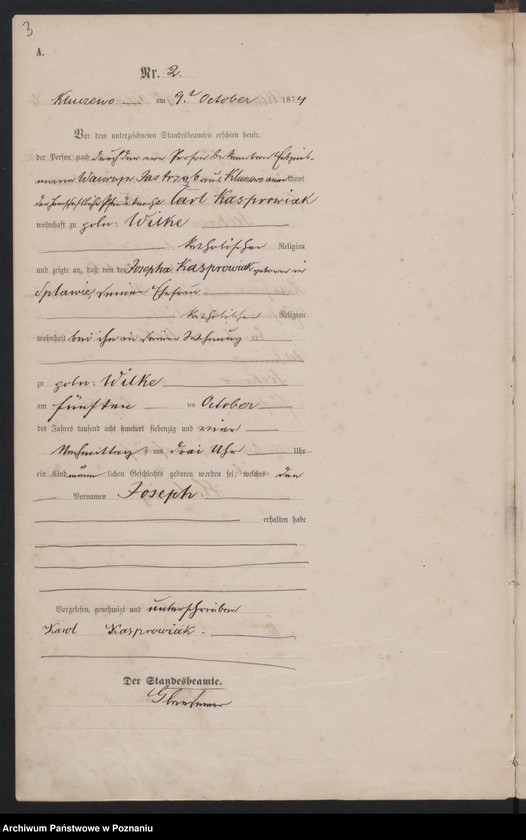 3
A.
Nr. 2.
Kluczewo am 9.t October 1874
Vor dem unterzeichneten Standesbeamten erschien heute,
der Person nach durch den von Person bekannten
aus Kluczewo kannt
Carl Kasprowiak
wohnhaft zu poln: Wilke
katholischer Religion
und zeigte an, daß von der Josepha Kasprowiak geborene
seiner Ehefrau
katholischer Religion
wohnhaft bei ihm in seiner Wohnung
zu poln: Wilke
am fünften ten October
des Jahres tausend acht hundert siebenzig und vier
Nachmittag s um drei Uhr Uhr
ein Kind männ lichen Geschlechts geboren worden sei, welches den
Vornamen Joseph
erhalten habe
Vorgelesen, genehmigt und unterschrieben
Karol Kasprowiak.
Der Standesbeamte.
Archiwum Państwowe w Poznaniu